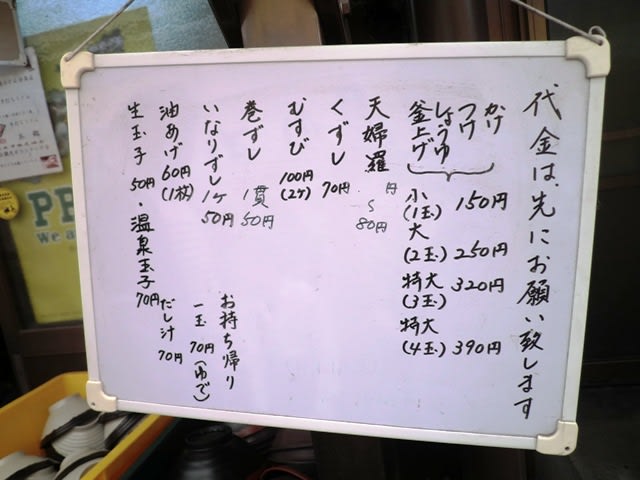 代金は、先にお願い致します
かけ
つけ
しょうゆ
釜上げ
小(1玉) 150円
大(2玉) 250円
特大(3玉) 320円
特大(4玉) 390円
天婦羅 円〜80円
くずし 70円
むすび 100円(2ケ)
巻ずし 1貫50円
いなりずし 1ケ50円
油あげ 60円(1枚)
生玉子 50円・温泉玉子 70円
お持ち帰り
一玉 70円(ゆで)
だし汁 70円